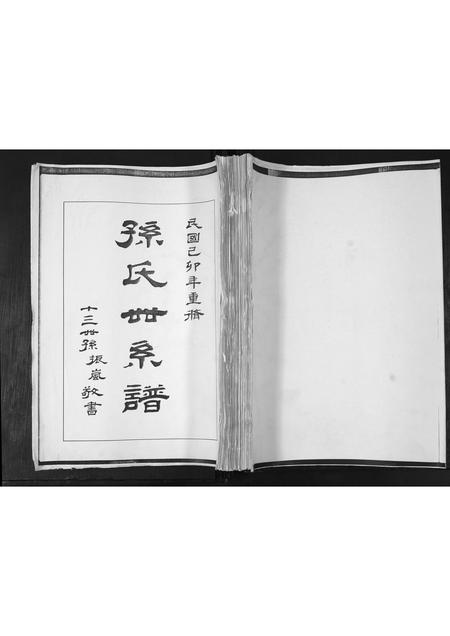 民國己卯年重脩
孫氏世系譜
十三世孫振嵐敬書